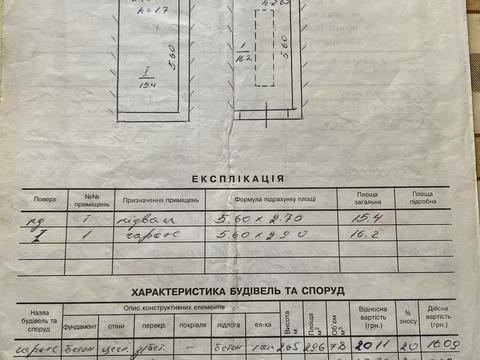 h=1.7
5.60
I
15.4
h=2.65
5.60
1
16.2
ЕКСПЛІКАЦІЯ
Поверх №№ приміщень Призначення приміщень Формула підрахунку площі Площа загальна Площа підсобна
пд I підвал 5.60 x 2.75 15.4
I 1 гараж 5.60 x 2.90 16.2
ХАРАКТЕРИСТИКА БУДІВЕЛЬ ТА СПОРУД
Назва будівель та споруд Опис конструктивних елементів Висота м Площа м2 Об'єм м3 Відносна вартість (грн.) % зносу Дійсна вартість (грн.)
фундамент стіни перекр. покрівля підлога ел-ка
гараж бетон цегл. з/бет. — бетон 265 2011 20 1609